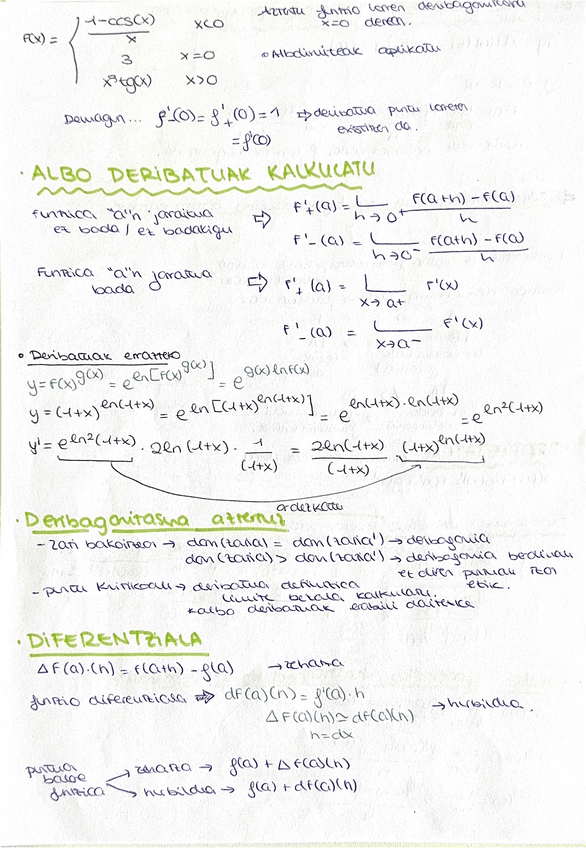 Aztertu funtzio honen deribagarritasuna
x=0 denean.
F(x) = { 1-cos(x) / x   x<0
3   x=0
x³tg(x)   x>0
• Albolimiteak aplikatu
Demagun... f'₋(0) = f'₊(0) = 1 ⇒ deribatua puntu horretan
= f'(0)   existitzen da.
· ALBO DERIBATUAK KALKULATU
Funtzioa "a"n jarraitua
ez bada / ez badakigu
⇨ F'₊(a) = L h→0⁺ F(a+h) - F(a) / h
F'₋(a) = L h→0⁻ F(a+h) - F(a) / h
Funtzioa "a"n jarraitua
bada
⇨ F'₊(a) = L x→a+ F'(x)
F'₋(a) = L x→a- F'(x)
• Deribatuak errazteko
y = F(x)^g(x) = e^ln[F(x)^g(x)] = e^g(x)lnf(x)
y = (1+x)^ln(1+x) = e^ln[(1+x)^ln(1+x)] = e^ln(1+x)·ln(1+x) = e^ln²(1+x)
y' = e^ln²(1+x) · 2ln(1+x) · 1/(1+x) = 2ln(1+x)/(1+x) · (1+x)^ln(1+x)
ordezkatu
· Deribagarritasuna aztertuz
- Zati bakoitzean → dom(zatia) = dom(zatia') → deribagarria
dom(zatia) > dom(zatia') → deribagarria berdinak
ez diren puntuan izan
ezik.
- puntu kritikoan → deribatua definitioa
limite bezala kalkulatu.
*albo deribatuak erabili daitezke
· DIFERENTZIALA
ΔF(a)·(h) = F(a+h) - f(a) → zehatza
funtzio diferentziala ⇨ dF(a)(h) = f'(a)·h
ΔF(a)(h) ≃ dF(a)(h) → hurbildua.
h=dx
puntua
baloe
funtzioa
→ zehatza → f(a) + ΔF(a)(h)
→ hurbildua → f(a) + dF(a)(h)